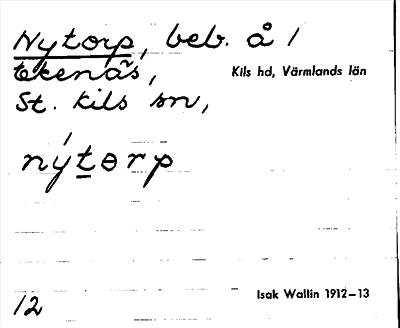 Nytorp, beb. å /
Ekenäs,
Kils hd, Värmlands län
St. Kils sn,
nýtɵrp
12
Isak Wallin 1912–13